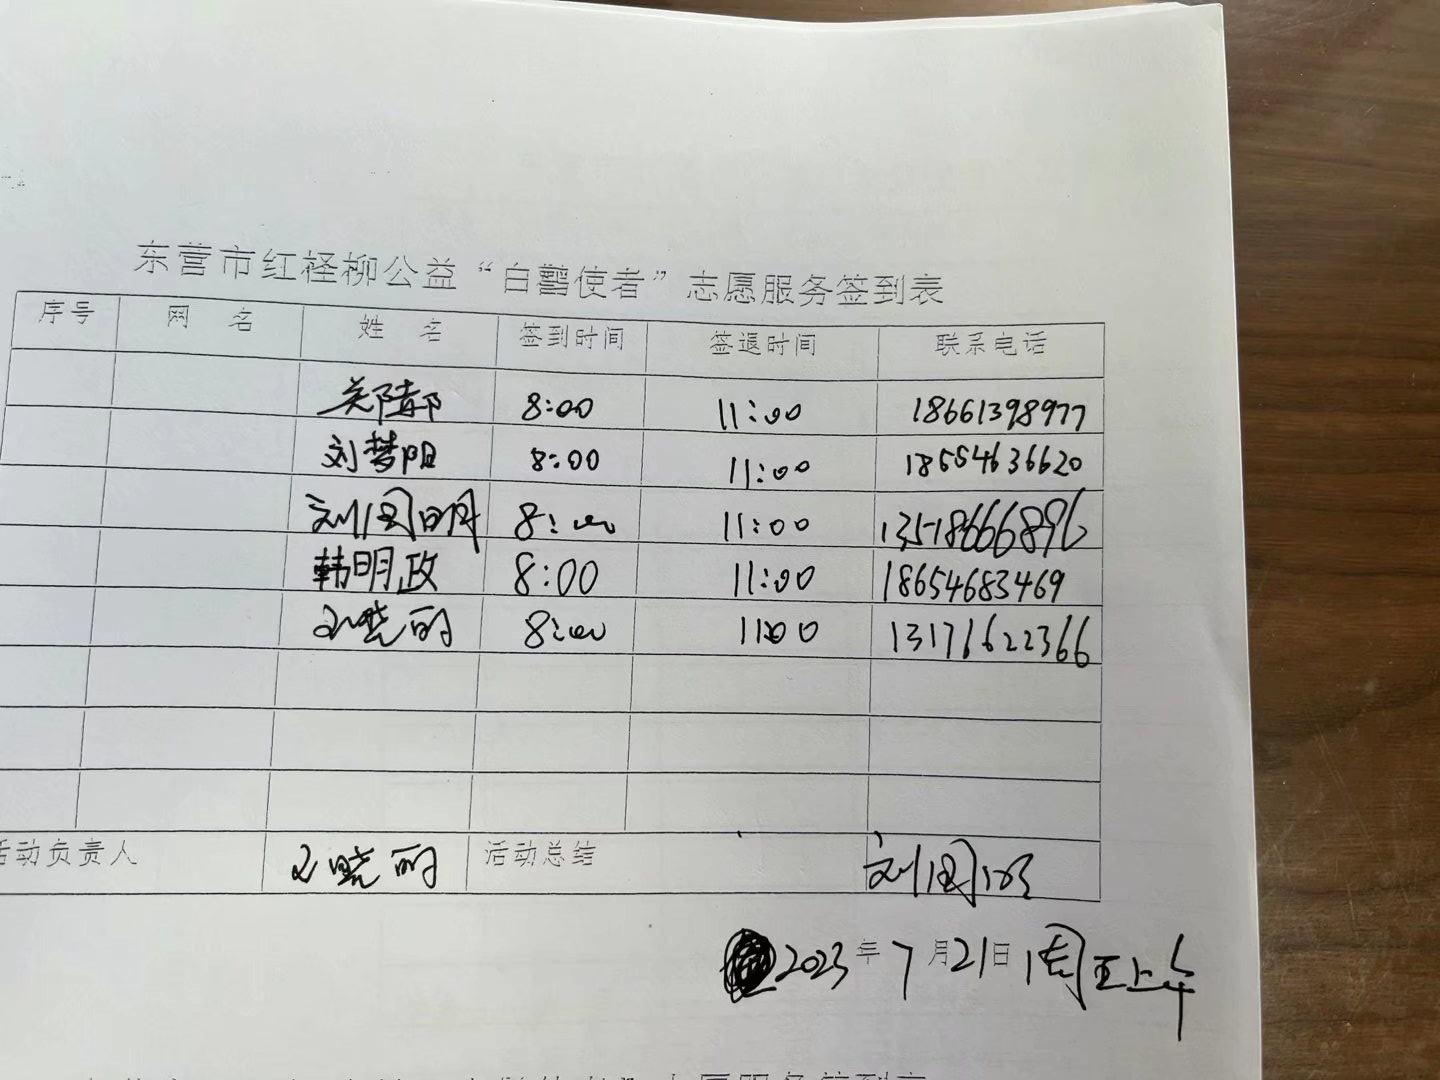 东营市红柽柳公益“白鹳使者”志愿服务签到表
序号 网 名 姓 名 签到时间 签退时间 联系电话
8:00 11:00 18661398977
刘梦阳 8:00 11:00 18554636620
刘国明 8:00 11:00 13518666896
韩明政 8:00 11:00 18654683469
王晓丽 8:00 11:00 13171622366
活动负责人 王晓丽 活动总结 刘国明
2023年7月21日周五上午